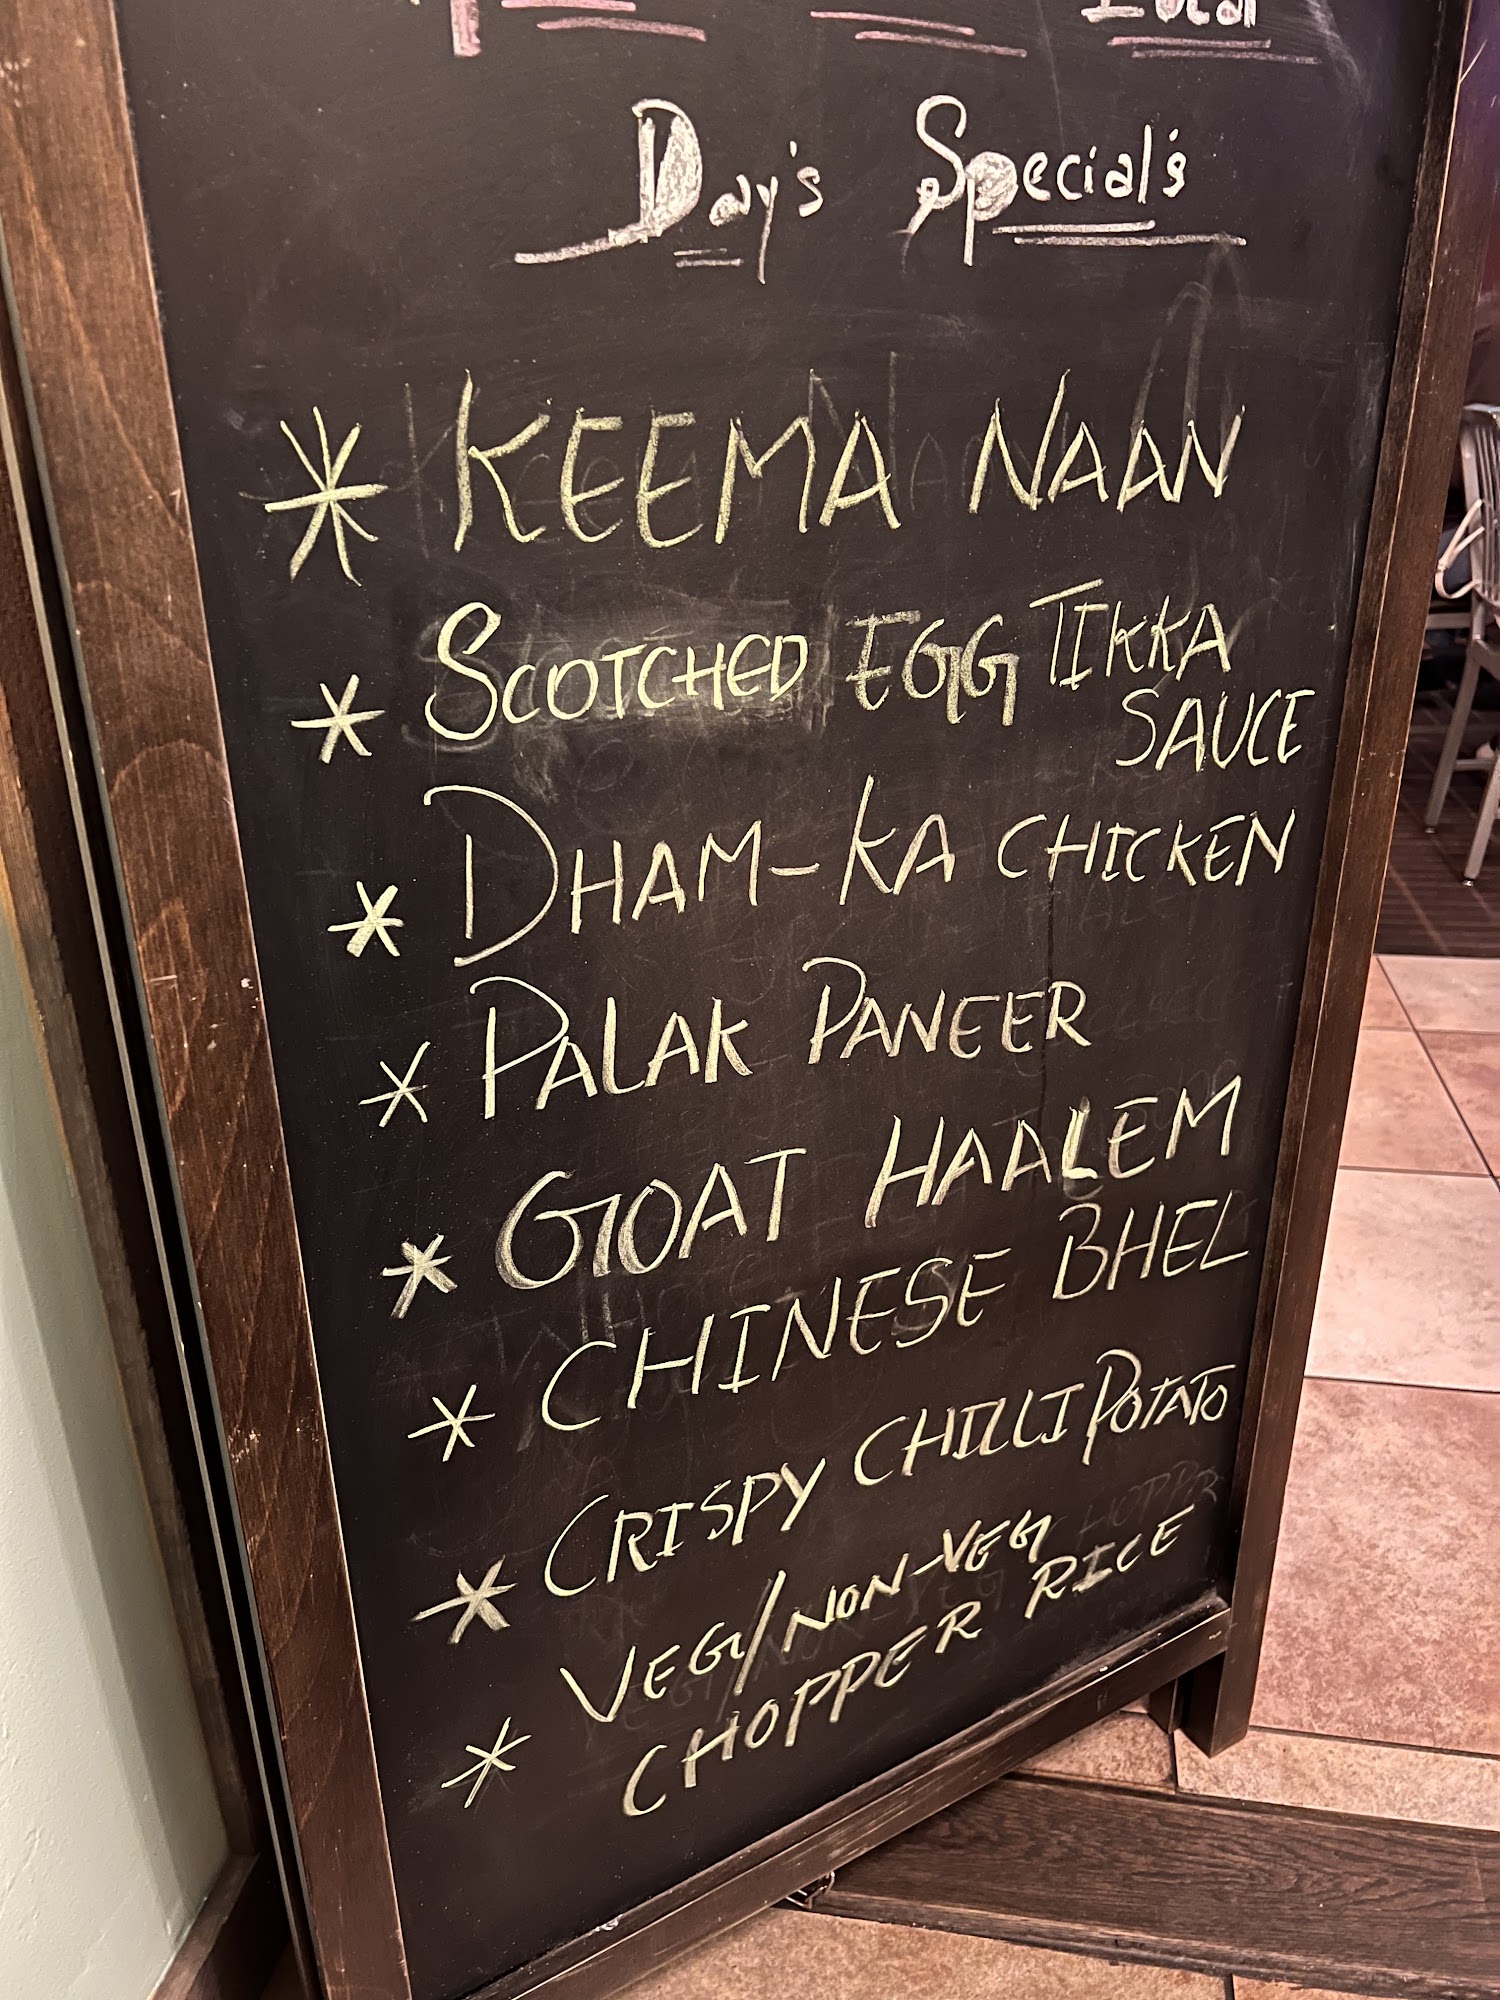 Local
Day's Special's
* KEEMA NAAN
* SCOTCHED EGG TIKKA
SAUCE
* DHAM-KA CHICKEN
* PALAK PANEER
* GOAT HAALEM
* CHINESE BHEL
* CRISPY CHILLI POTATO
* VEG/NON-VEG
CHOPPER RICE